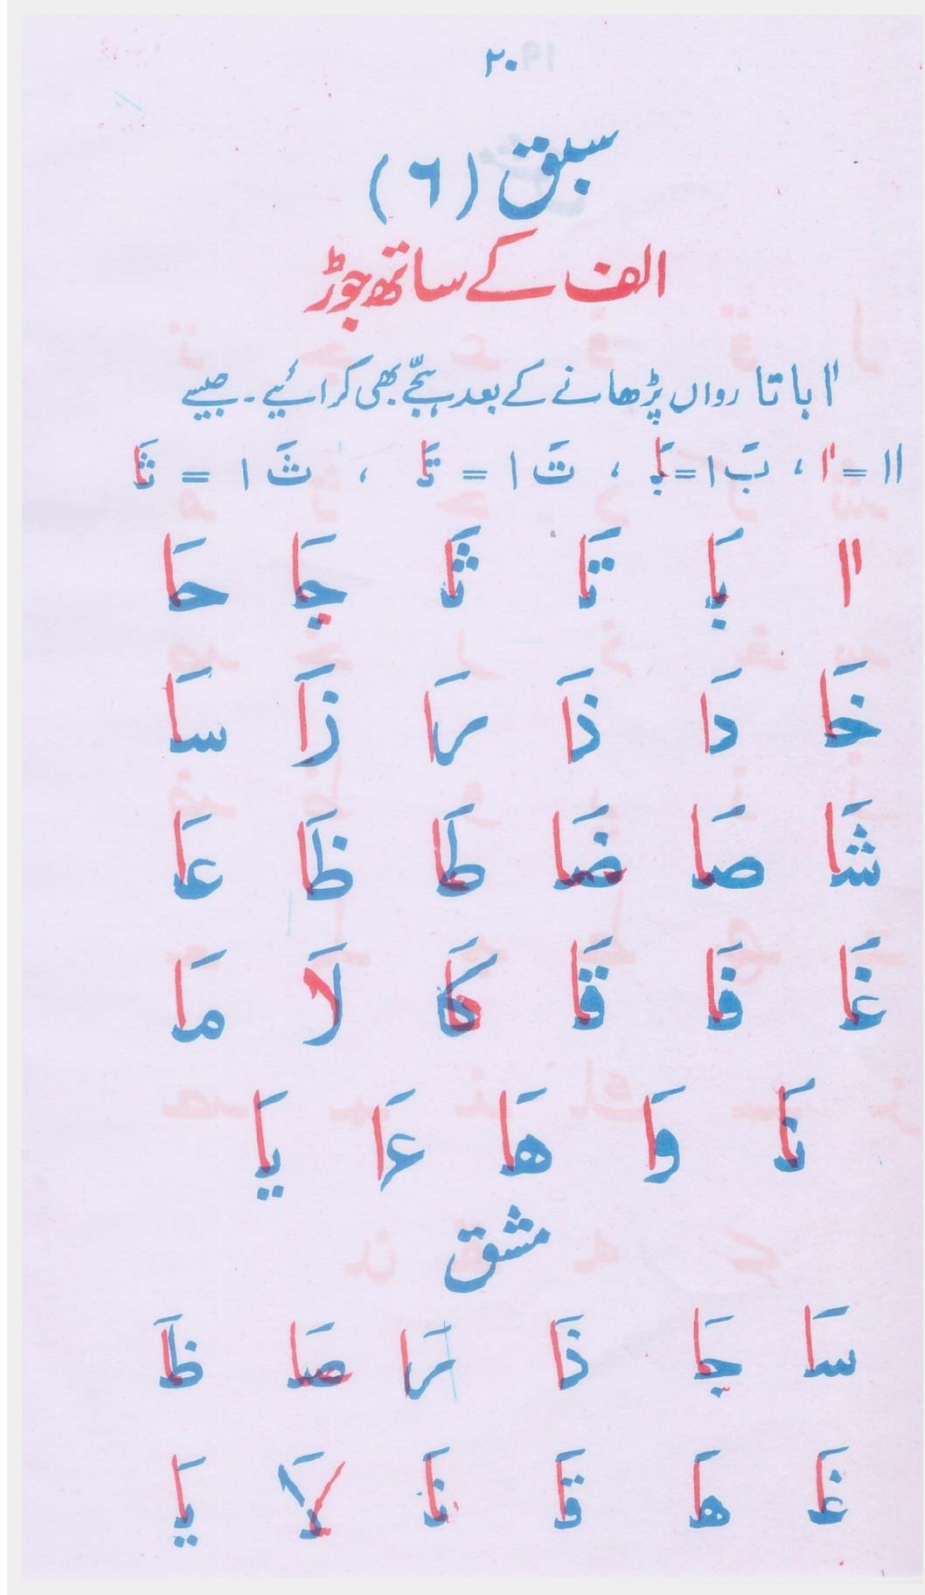 ۲۰
سبق (٦)
الف کے ساتھ جوڑ
اَا با تا رواں پڑھانے کے بعد ہجّے بھی کرائیے۔ جیسے
اا = اَا ، بَ ا = بَا ، تَ ا = تَا ، ثَ ا = ثَا
اَا بَا تَا ثَا جَا حَا
خَا دَا ذَا رَا زَا سَا
شَا صَا ضَا طَا ظَا عَا
غَا فَا قَا كَا لَا مَا
نَا وَا هَا ءَا يَا
مشق
سَا جَا ذَا رَا صَا ظَا
غَا هَا قَا نَا لَا يَا